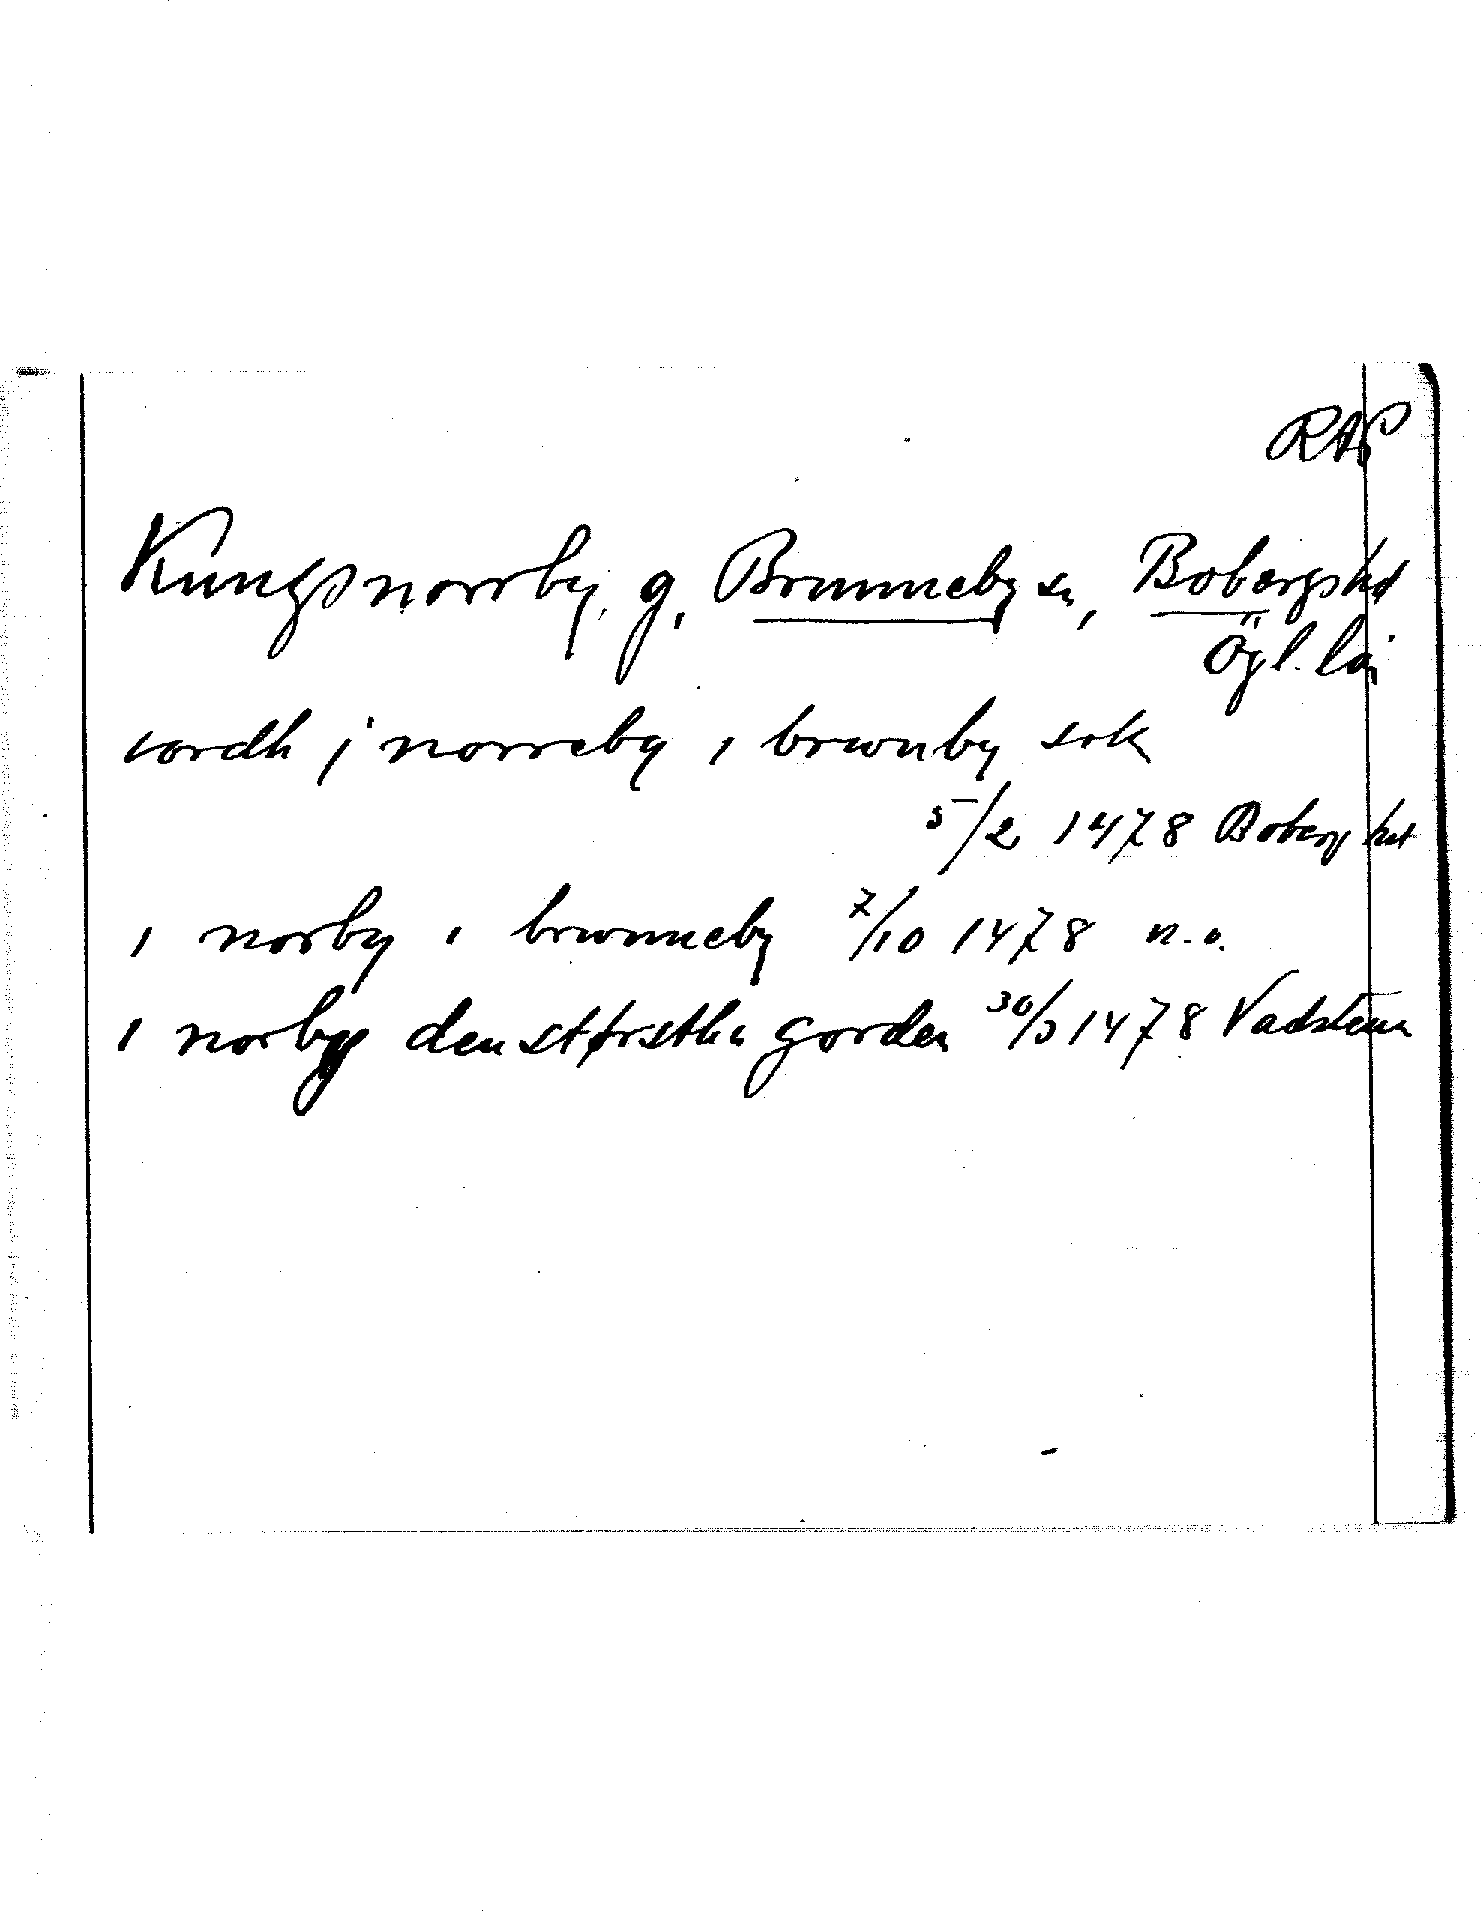 RAP
Kungsnorrby, g, Brunneby sn, Bobergs hd
Ögl. län
i norreby i brwnby sok
5/2 1478 Boberg hd
i norby i brwnneby 7/10 1478 n.o.
i norby den størsthe gorden 30/3 1478 Vadstena